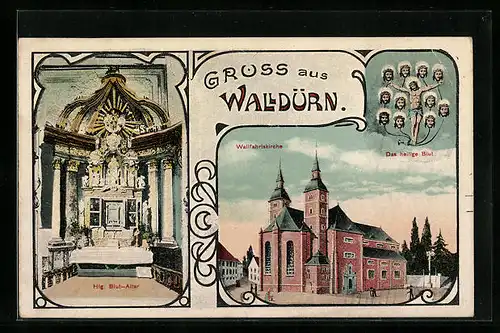 GRUSS aus
WALLDÜRN.
Wallfahrtskirche
Das heilige Blut.
Hlg. Blut-Altar